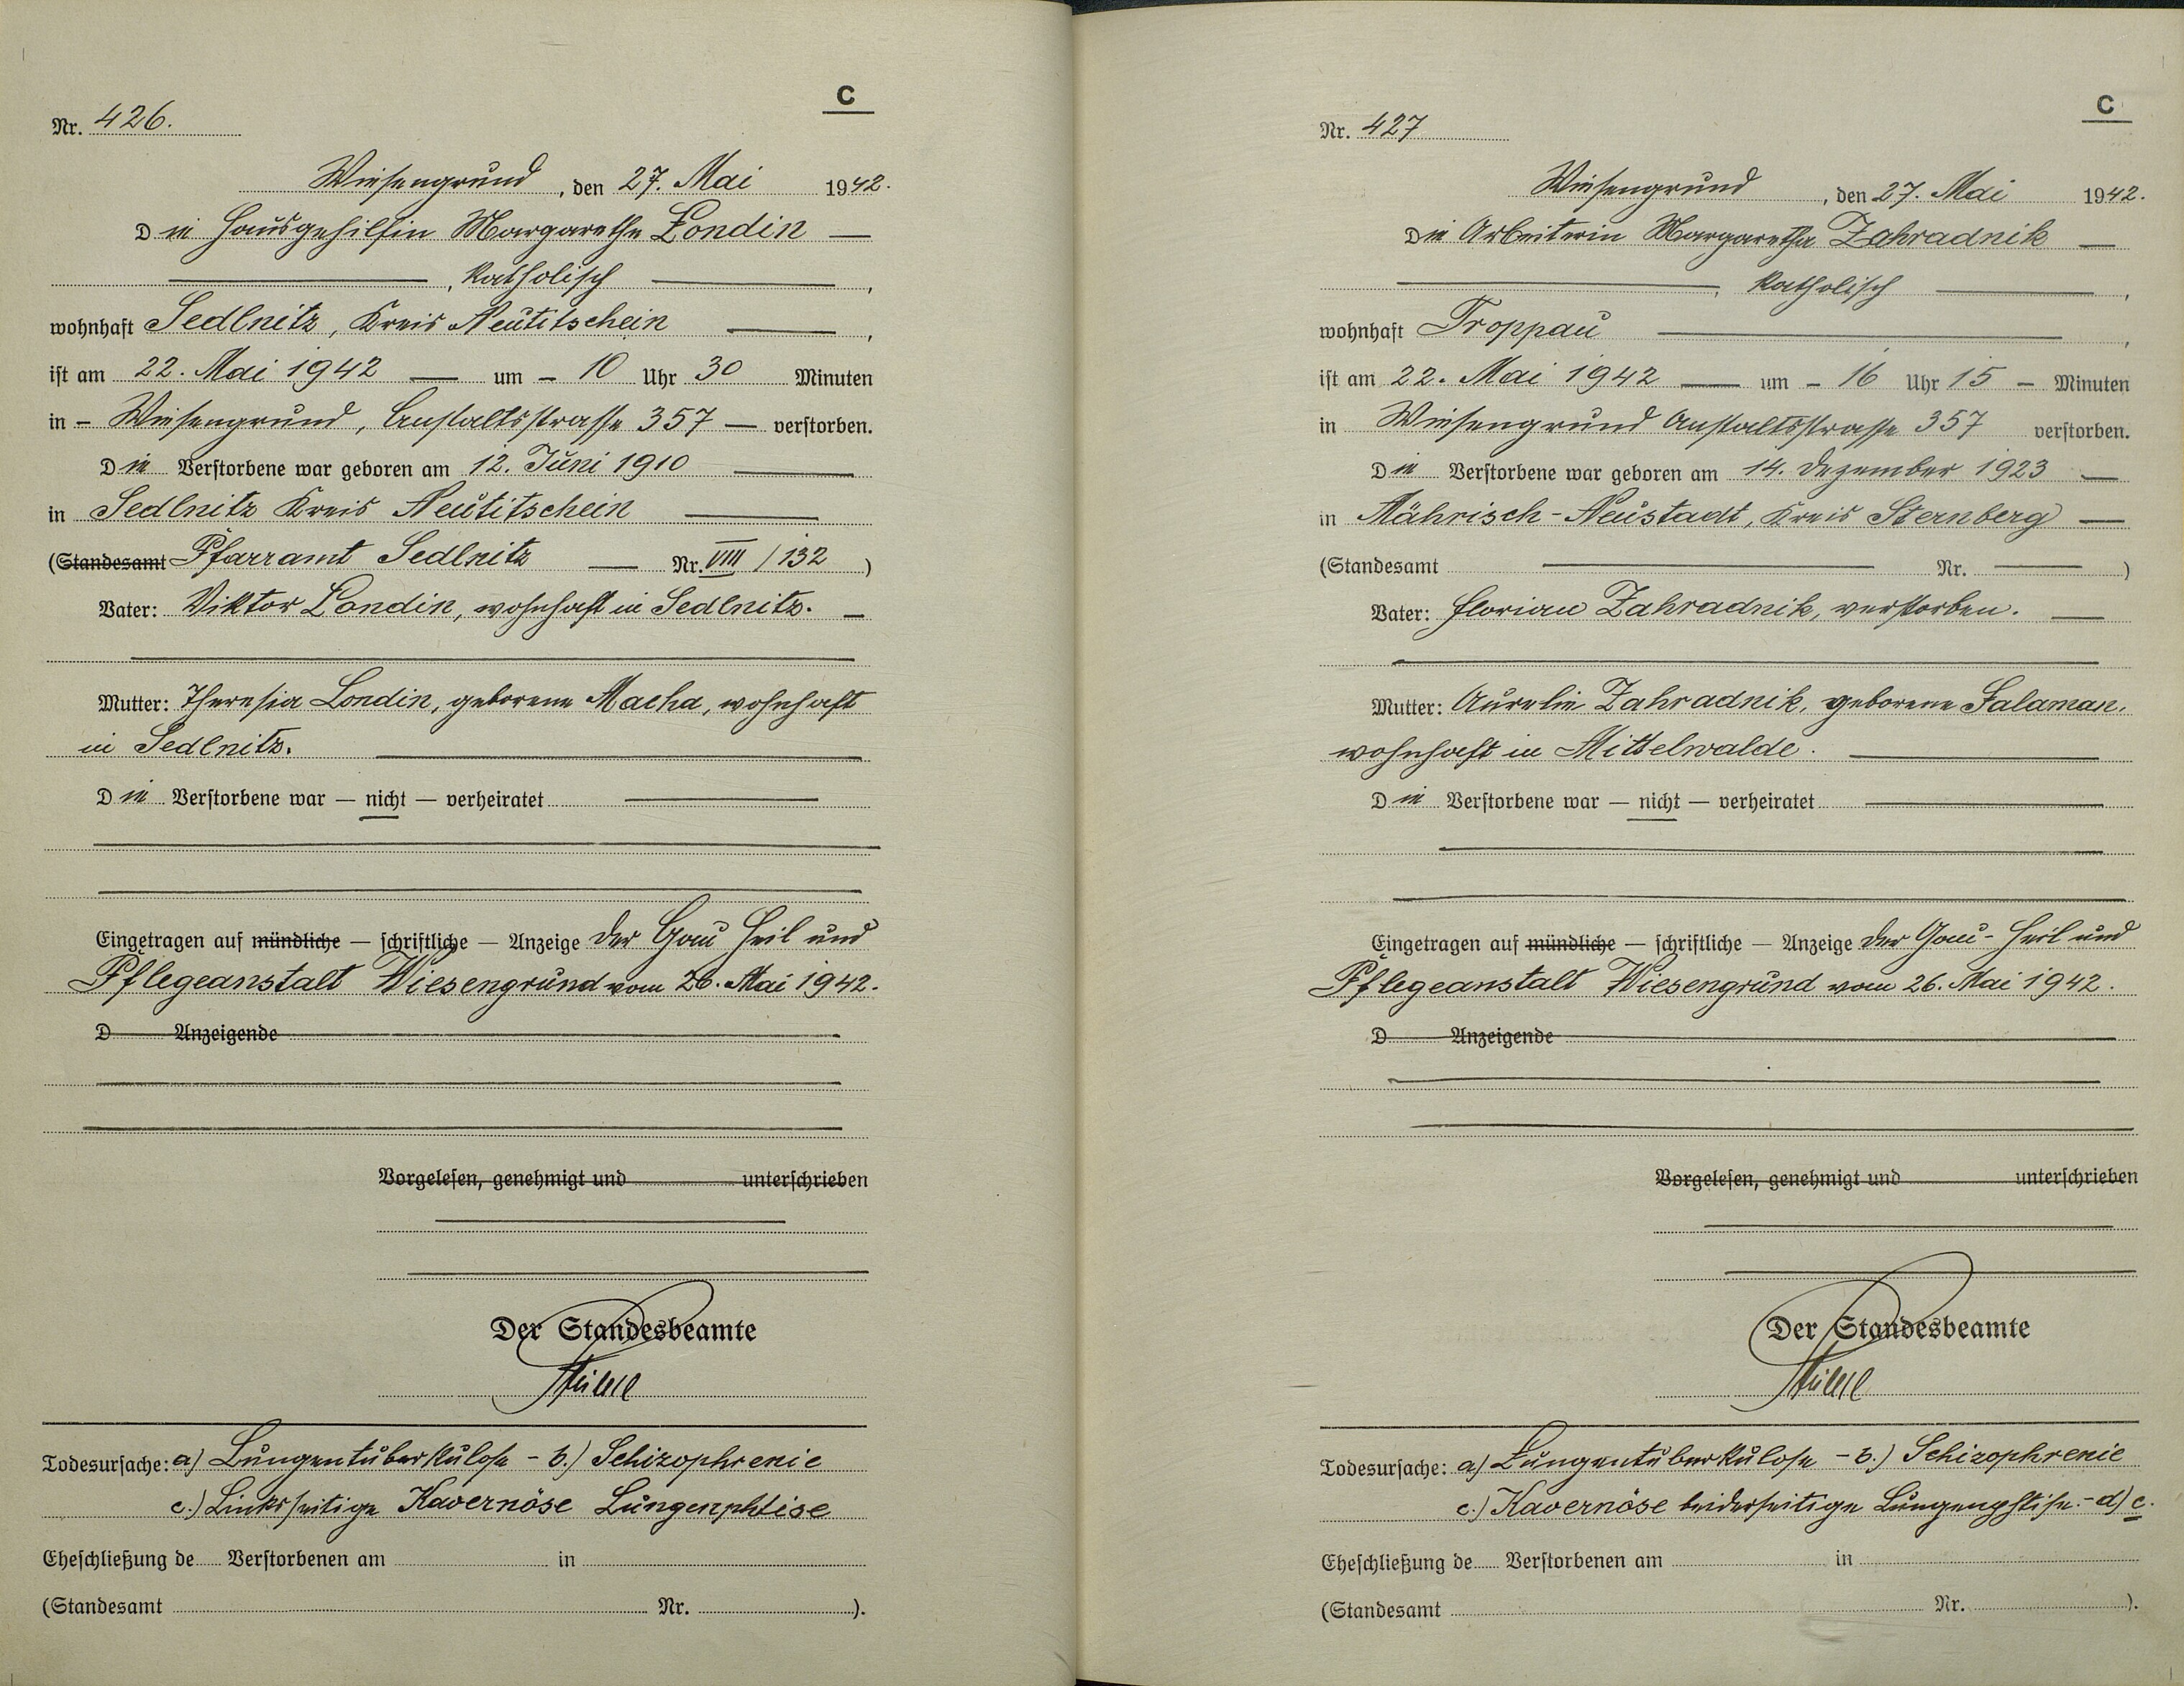 C
Nr. 426.
Wiesengrund, den 27. Mai 1942.
Die Hausgehilfin Margarethe Londin —
—, katholisch —,
wohnhaft Sedlnitz, Kreis Neutitschein —,
ist am 22. Mai 1942 — um – 10 Uhr 30 Minuten
in – Wiesengrund, Anstaltsstrasse 357 — verstorben.
Die Verstorbene war geboren am 12. Juni 1910 —
in Sedlnitz Kreis Neutitschein —
(Standesamt Pfarramt Sedlnitz — Nr. VIII / 132)
Vater: Viktor Londin, wohnhaft in Sedlnitz. —
Mutter: Theresia Londin, geborene Macha, wohnhaft
in Sedlnitz. —
Die Verstorbene war — nicht — verheiratet —
Eingetragen auf mündliche — schriftliche — Anzeige der Gau Heil und
Pflegeanstalt Wiesengrund vom 26. Mai 1942.
D Anzeigende
Vorgelesen, genehmigt und unterschrieben
Der Standesbeamte
Todesursache: a) Lungentuberkulose – b.) Schizophrenie
c.) Linksseitige Kavernöse Lungenphtise
Eheschließung de Verstorbenen am in
(Standesamt Nr. ).
C
Nr. 427
Wiesengrund, den 27. Mai 1942.
Die Arbeiterin Margaretha Zahradnik —
—, katholisch —,
wohnhaft Troppau —,
ist am 22. Mai 1942 — um – 16 Uhr 15 – Minuten
in Wiesengrund Anstaltsstrasse 357 verstorben.
Die Verstorbene war geboren am 14. Dezember 1923 —
in Mährisch-Neustadt, Kreis Sternberg —
(Standesamt — Nr. —)
Vater: Florian Zahradnik, verstorben. —
Mutter: Aurelie Zahradnik, geborene Salaman,
wohnhaft in Mittelwalde. —
Die Verstorbene war — nicht — verheiratet —
Eingetragen auf mündliche — schriftliche — Anzeige der Gau-Heil und
Pflegeanstalt Wiesengrund vom 26. Mai 1942.
D Anzeigende
Vorgelesen, genehmigt und unterschrieben
Der Standesbeamte
Todesursache: a) Lungentuberkulose – b.) Schizophrenie
c.) Kavernöse beiderseitige Lungenphtise. – d) c.
Eheschließung de Verstorbenen am in
(Standesamt Nr. ).